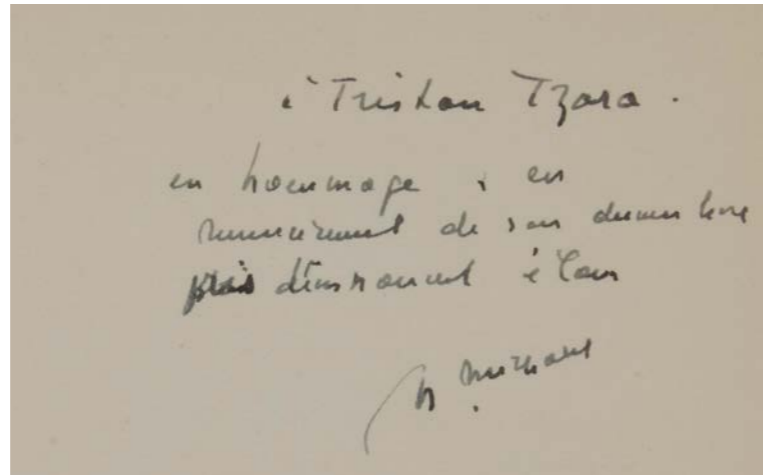 à Tristan Tzara.
en hommage & en
remerciement de son dernier livre
à l'ami
H. Michaux